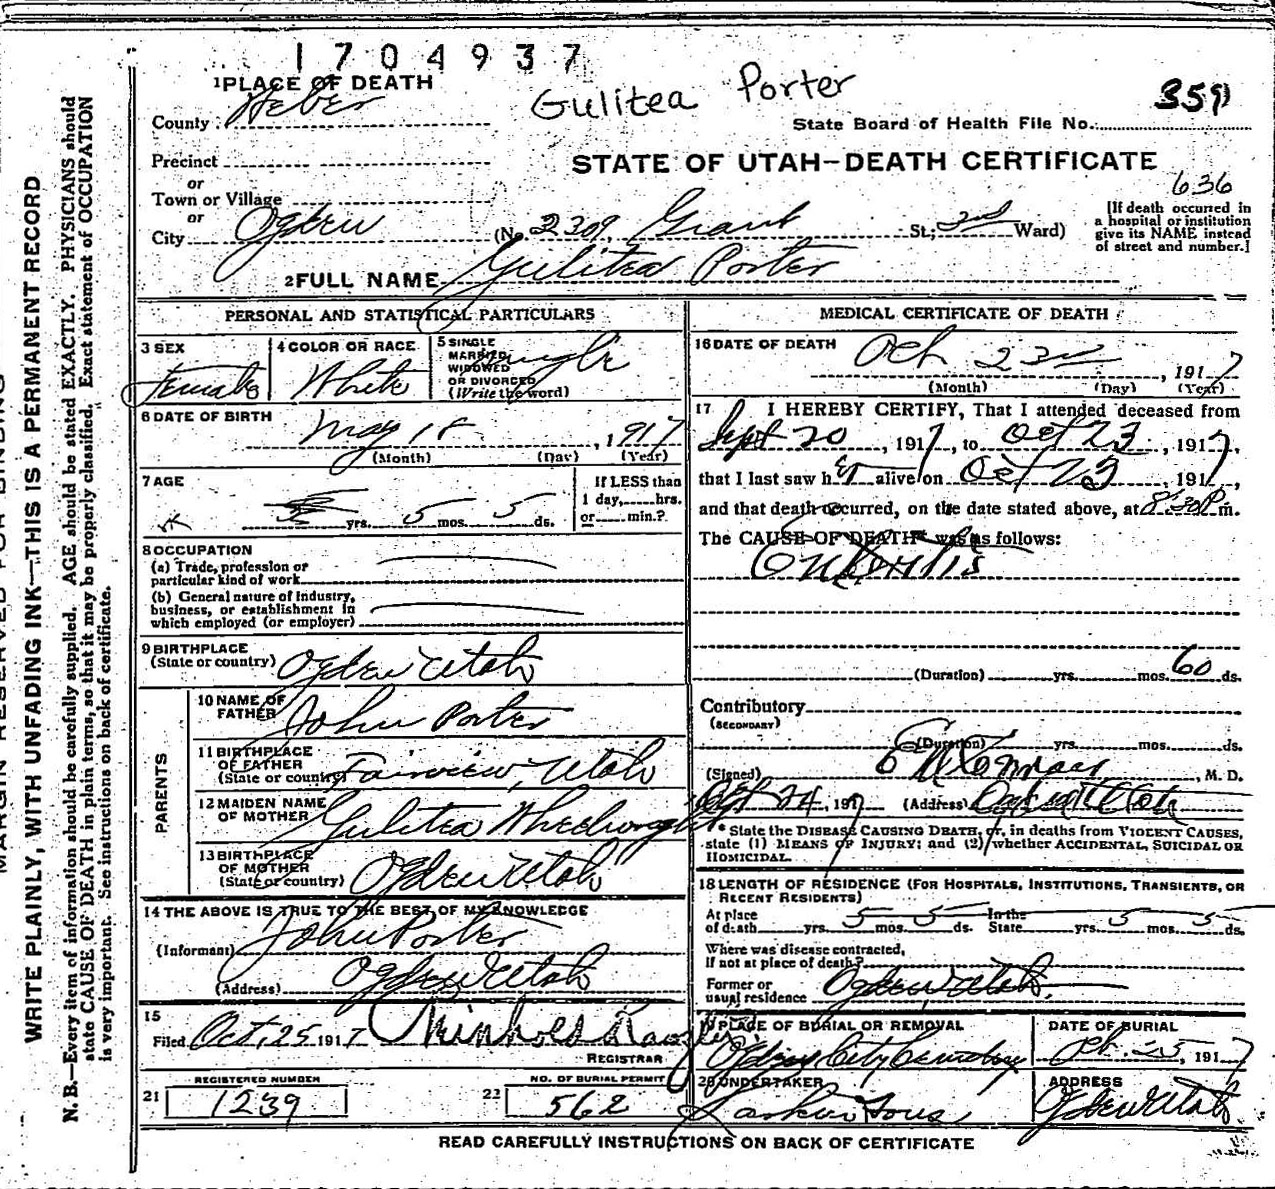 1704937
1 PLACE OF DEATH
Gulitea Porter
359
County Weber
State Board of Health File No.
Precinct
STATE OF UTAH—DEATH CERTIFICATE
or
Town or Village
636
or
City Ogden (No. 2309 Grant St.; 2nd Ward)
[If death occurred in
a hospital or institution
give its NAME instead
of street and number.]
2 FULL NAME Gulitea Porter
PERSONAL AND STATISTICAL PARTICULARS
3 SEX Female
4 COLOR OR RACE White
5 SINGLE
MARRIED
WIDOWED
OR DIVORCED
(Write the word) Single
6 DATE OF BIRTH
May 18, 1917
(Month) (Day) (Year)
7 AGE
yrs. 5 mos. 5 ds.
If LESS than
1 day, hrs.
or min.?
8 OCCUPATION
(a) Trade, profession or
particular kind of work
(b) General nature of industry,
business, or establishment in
which employed (or employer)
9 BIRTHPLACE
(State or country) Ogden Utah
PARENTS
10 NAME OF
FATHER John Porter
11 BIRTHPLACE
OF FATHER
(State or country) Fairview, Utah
12 MAIDEN NAME
OF MOTHER Gulitea
13 BIRTHPLACE
OF MOTHER
(State or country) Ogden Utah
14 THE ABOVE IS TRUE TO THE BEST OF MY KNOWLEDGE
(Informant) John Porter
(Address) Ogden Utah
15
Filed Oct. 25 1917
REGISTRAR
REGISTERED NUMBER
21 1239
NO. OF BURIAL PERMIT
22 562
MEDICAL CERTIFICATE OF DEATH
16 DATE OF DEATH Oct 23rd, 1917
(Month) (Day) (Year)
17 I HEREBY CERTIFY, That I attended deceased from
Sept 20, 1917, to Oct 23, 1917,
that I last saw her alive on Oct 23, 1917,
and that death occurred, on the date stated above, at 8:30 P.m.
The CAUSE OF DEATH* was as follows:
(Duration) yrs. mos. 60 ds.
Contributory
(SECONDARY)
(Duration) yrs. mos. ds.
(Signed) , M. D.
24, 191 (Address) Ogden Utah
* State the DISEASE CAUSING DEATH, or, in deaths from VIOLENT CAUSES,
state (1) MEANS OF INJURY; and (2) whether ACCIDENTAL, SUICIDAL OR
HOMICIDAL.
18 LENGTH OF RESIDENCE (FOR HOSPITALS, INSTITUTIONS, TRANSIENTS, OR
RECENT RESIDENTS)
At place
of death yrs. 5 mos. 5 ds. In the
State yrs. 5 mos. 5 ds.
Where was disease contracted,
If not at place of death?
Former or
usual residence Ogden Utah.
19 PLACE OF BURIAL OR REMOVAL
Ogden City Cemetery
DATE OF BURIAL
Oct. 25, 1917
20 UNDERTAKER
Larkin Sons
ADDRESS
Ogden Utah
READ CAREFULLY INSTRUCTIONS ON BACK OF CERTIFICATE
MARGIN RESERVED FOR BINDING
WRITE PLAINLY, WITH UNFADING INK—THIS IS A PERMANENT RECORD
N. B.—Every item of information should be carefully supplied. AGE should be stated EXACTLY. PHYSICIANS should
state CAUSE OF DEATH in plain terms, so that it may be properly classified. Exact statement of OCCUPATION
is very important. See instructions on back of certificate.